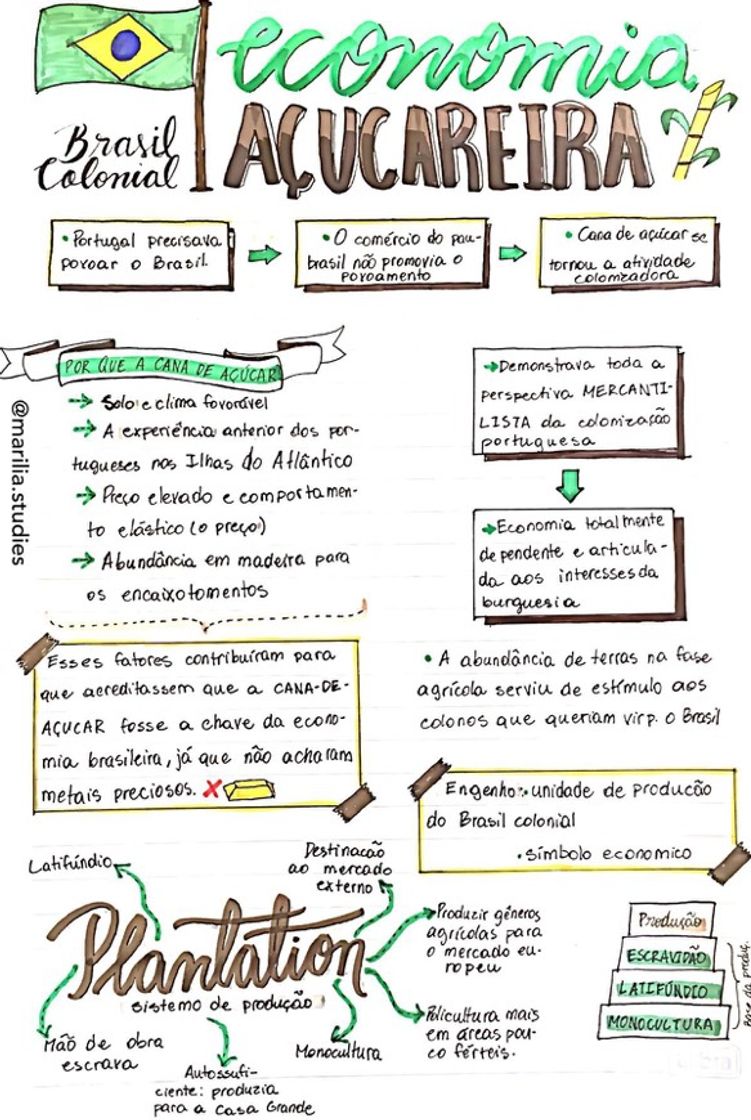 economia
AÇUCAREIRA
Brasil
Colonial
• Portugal precisava
povoar o Brasil.
• O comércio do pau-
brasil não promovia o
povoamento
• Cana de açúcar se
tornou a atividade
colonizadora
POR QUE A CANA DE AÇÚCAR
→ Solo e clima favorável
→ A experiência anterior dos por-
tugueses nas Ilhas do Atlântico
→ Preço elevado e comportamen-
to elástico (o preço)
→ Abundância em madeira para
os encaixotamentos
@marilia.studies
Esses fatores contribuíram para
que acreditassem que a CANA-DE-
AÇUCAR fosse a chave da econo-
mia brasileira, já que não acharam
metais preciosos.
→ Demonstrava toda a
perspectiva MERCANTI-
LISTA da colonização
portuguesa
→ Economia totalmente
dependente e articula-
da aos interesses da
burguesia
• A abundância de terras na fase
agrícola serviu de estímulo aos
colonos que queriam vir p. o Brasil
Engenho: • unidade de produção
do Brasil colonial
• símbolo economico
Latifúndio
Destinação
ao mercado
externo
Plantation
sistema de produção
Produzir gêneros
agrícolas para
o mercado eu-
ropeu
Policultura mais
em áreas pou-
co férteis.
Mão de obra
escrava
Autossufi-
ciente: produzia
para a Casa Grande
Monocultura
Produção
ESCRAVIDÃO
LATIFÚNDIO
MONOCULTURA
Base da produç.